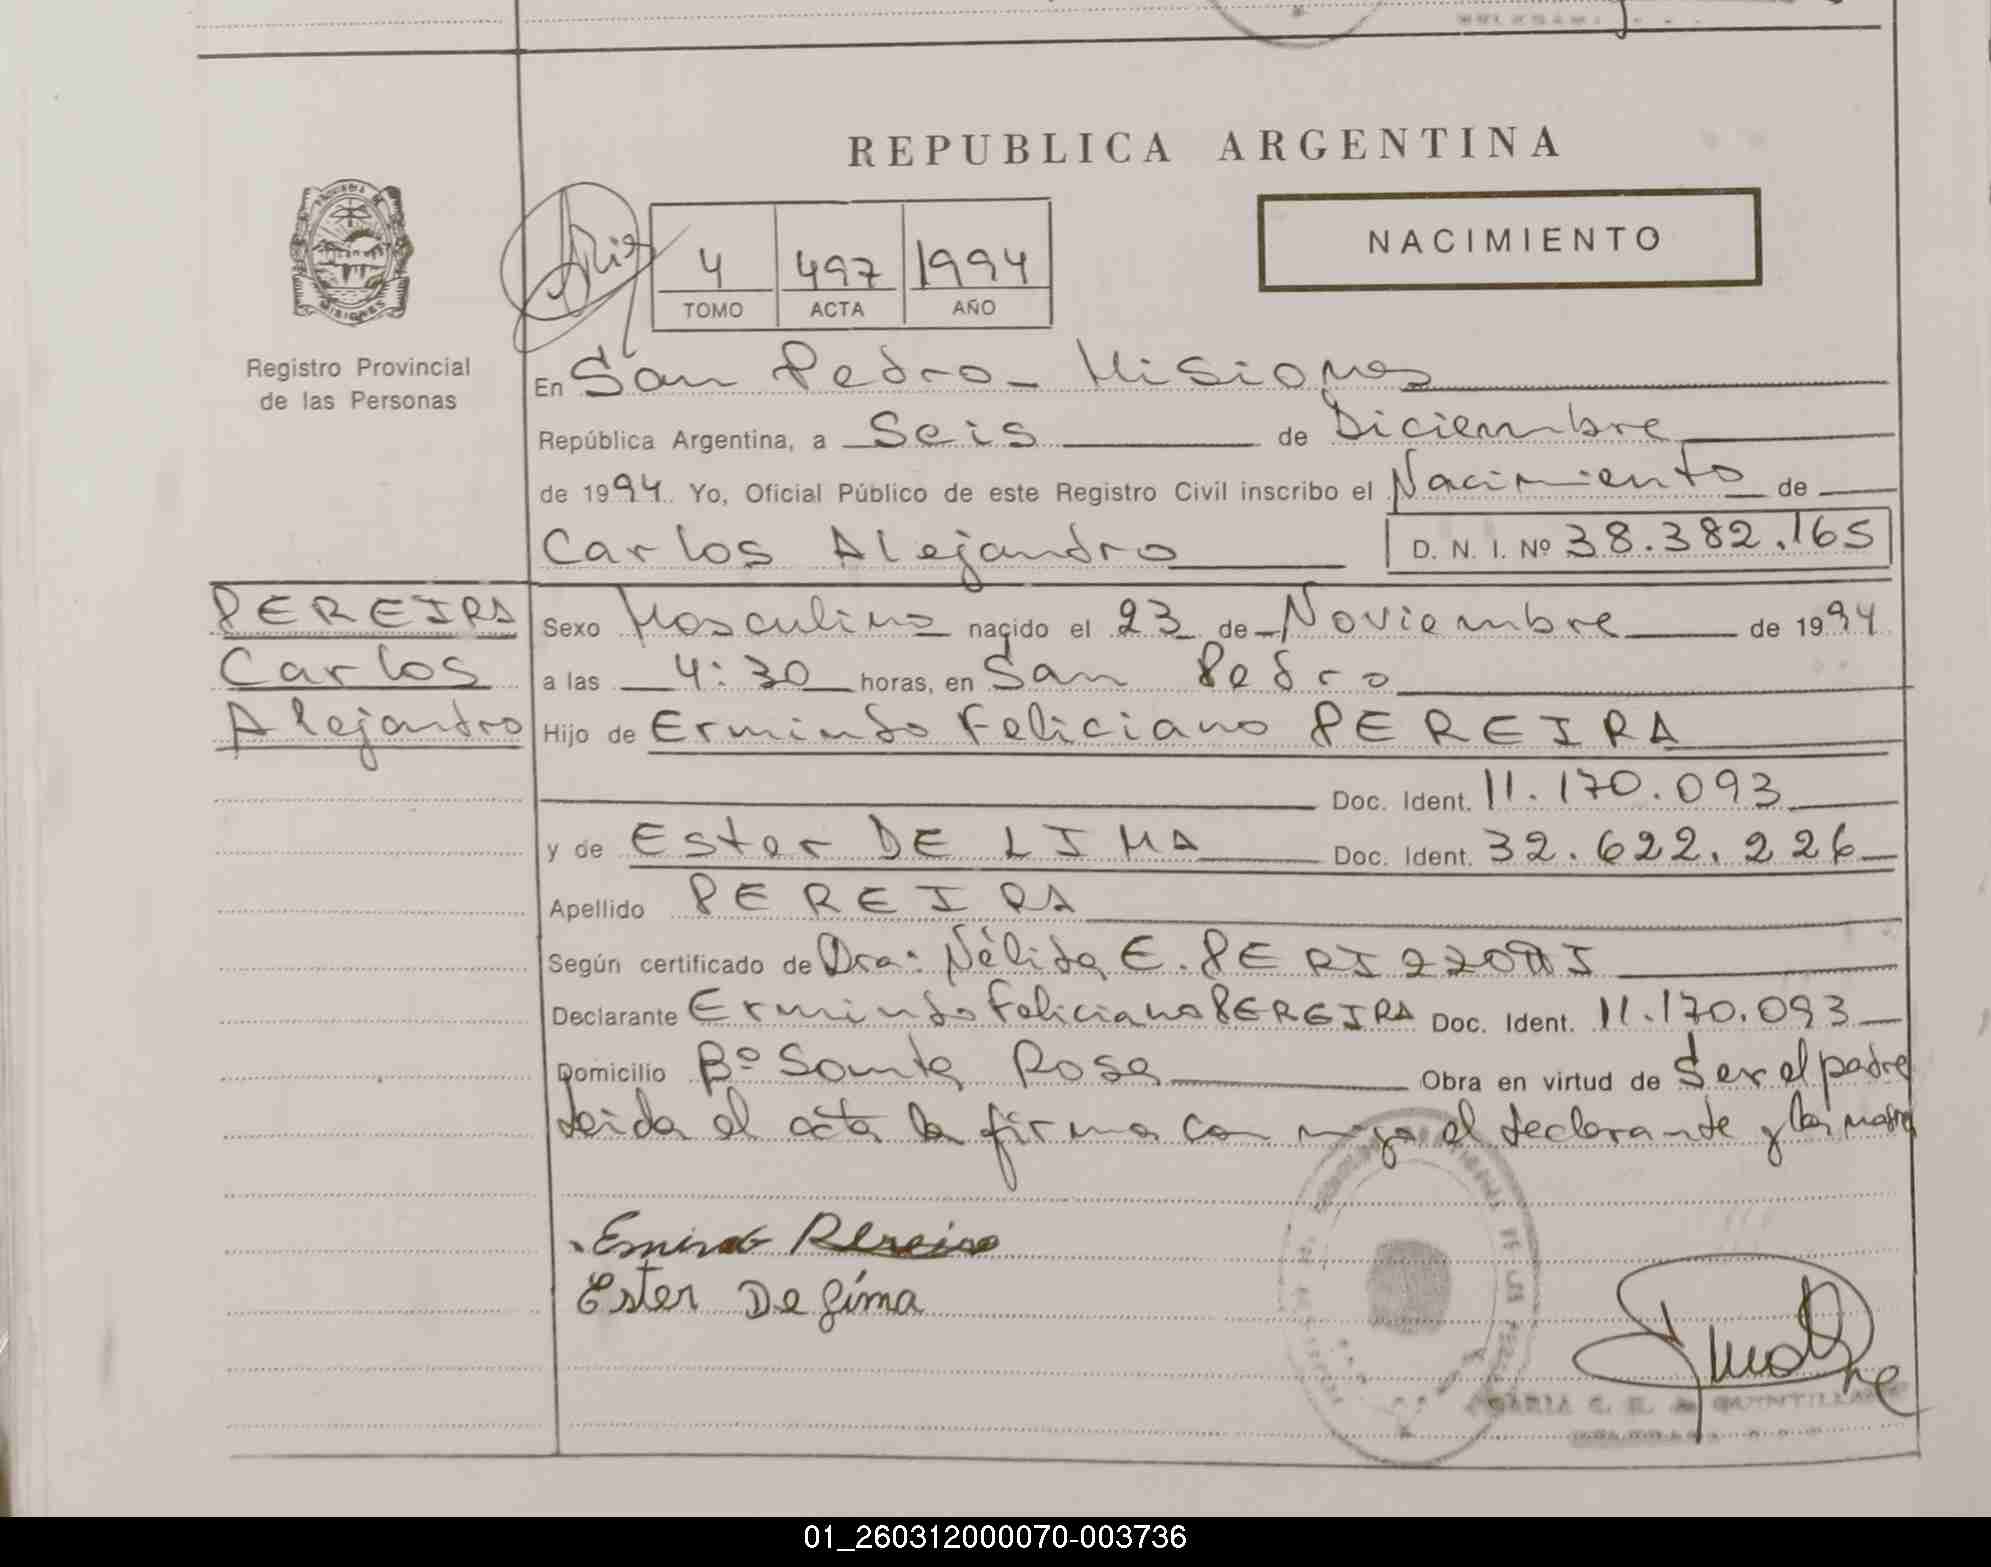 REPUBLICA ARGENTINA
NACIMIENTO
4 497 1994
TOMO ACTA AÑO
Registro Provincial
de las Personas
En San Pedro - Misiones
República Argentina, a Seis de Diciembre
de 1994 Yo, Oficial Público de este Registro Civil inscribo el Nacimiento de
Carlos Alejandro D. N. I. Nº 38.382.165
PEREIRA
Carlos
Alejandro
Sexo Masculino nacido el 23 de Noviembre de 1994
a las 4:30 horas, en San Pedro
Hijo de Ermindo Feliciano PEREIRA
Doc. Ident. 11.170.093
y de Ester DE LIMA Doc. Ident. 32.622.226
Apellido PEREIRA
Según certificado de Dra: Nélida E.
Declarante Ermindo Feliciano PEREIRA Doc. Ident. 11.170.093
Domicilio Bº Santa Rosa Obra en virtud de Ser el padre
Leida el acta la firma con migo el declarante y la madre
Pereira
Ester De Lima
MARIA QUINTILLAN
01_260312000070-003736